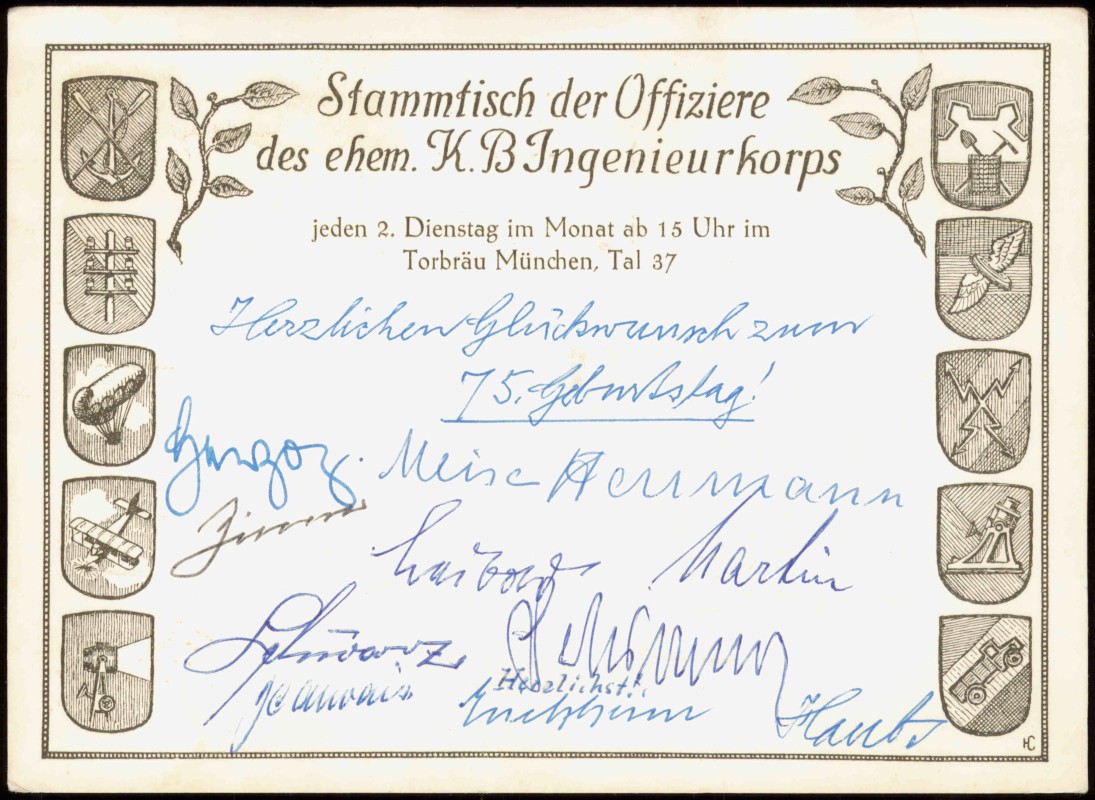 Stammtisch der Offiziere
des ehem. K. B Ingenieurkorps
jeden 2. Dienstag im Monat ab 15 Uhr im
Torbräu München, Tal 37
Herzlichen Glückwunsch zum
75. Geburtstag!
Herzog. Meise Herrmann
Martin
Schwarz
Herzlichst!
HC